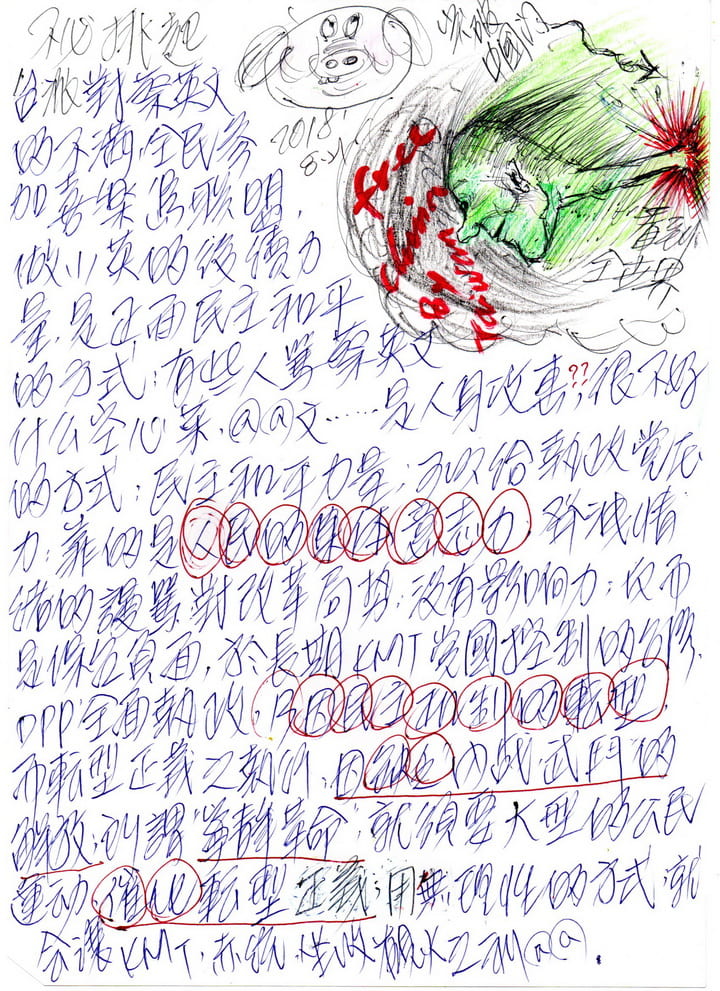 不必挑起
突破
中國
台派對蔡英文
2018
8-21
的不滿,全民參
加喜樂島聯盟,
Free
China
Nazism
By
Taiwan
做小英的後續力
全世界
量,是正面民主和平
的方式;有些人罵蔡英文
什么空心菜,@@文......是人身攻擊??很不好
的方式;民主和平力量,可以給執政党压
力;靠的是人民的集体意志力 發洩情
緒的謾罵,對改革局勢,沒有影响力;反而
是保守負面,於長期KMT党國控制的台灣,
DPP全面執政,只因民主机制的転型,
而転型正義之執行,因缺乏內战,武鬥的
解放,所謂 寧靜革命,就須要大型的公民
運动 催化転型正義;用無理性的方式,就
会讓KMT,赤統,坐收漁人之利@@.